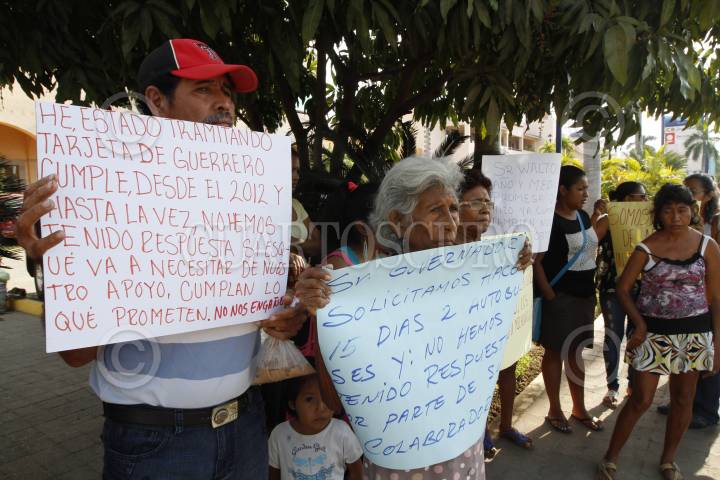 HE, ESTADO TRAMITANDO
TARJETA DE GUERRERO
CUMPLE, DESDE EL 2012 Y
HASTA LA VEZ NO HEMOS
TENIDO RESPUESTA
UÉ VA A NECESITAR DE NUES
TRO APOYO, CUMPLAN LO
QUÉ PROMETEN. NO NOS ENGA
SR. GOBERNADOR
SOLICITAMOS HACE
15 DIAS 2 AUTOBU
SES Y: NO HEMOS
TENIDO RESPUESTA
POR PARTE DE S
COLABORADOR
SR WALTO
AÑO Y MED
SOMOS
CUARTOSCURO